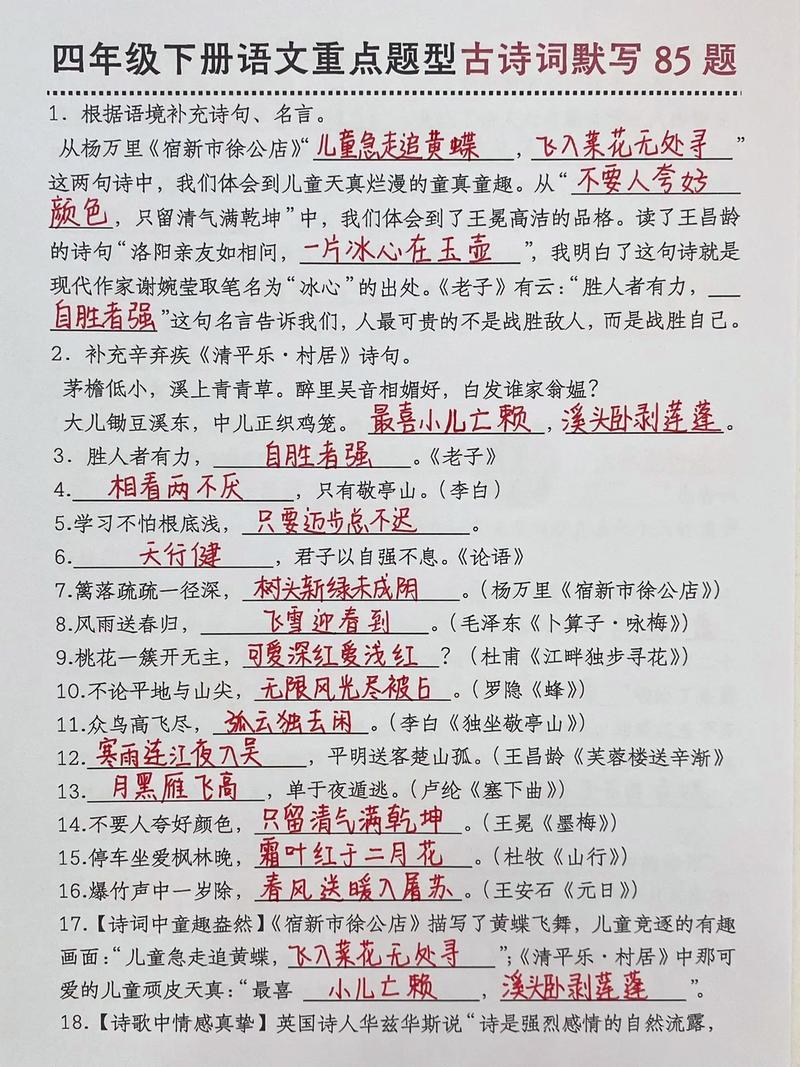 四年级下册语文重点题型古诗词默写85题
1．根据语境补充诗句、名言。
从杨万里《宿新市徐公店》“儿童急走追黄蝶，飞入菜花无处寻”
这两句诗中，我们体会到儿童天真烂漫的童真童趣。从“不要人夸好
颜色，只留清气满乾坤”中，我们体会到了王冕高洁的品格。读了王昌龄
的诗句“洛阳亲友如相问，一片冰心在玉壶”，我明白了这句诗就是
现代作家谢婉莹取笔名为“冰心”的出处。《老子》有云：“胜人者有力，
自胜者强”这句名言告诉我们，人最可贵的不是战胜敌人，而是战胜自己。
2．补充辛弃疾《清平乐·村居》诗句。
茅檐低小，溪上青青草。醉里吴音相媚好，白发谁家翁媪？
大儿锄豆溪东，中儿正织鸡笼。最喜小儿亡赖，溪头卧剥莲蓬。
3．胜人者有力，自胜者强。《老子》
4.相看两不厌，只有敬亭山。（李白）
5.学习不怕根底浅，只要迈步总不迟。
6.天行健，君子以自强不息。《论语》
7.篱落疏疏一径深，树头新绿未成阴。（杨万里《宿新市徐公店》）
8.风雨送春归，飞雪迎春到。（毛泽东《卜算子·咏梅》）
9.桃花一簇开无主，可爱深红爱浅红？（杜甫《江畔独步寻花》）
10.不论平地与山尖，无限风光尽被占。（罗隐《蜂》）
11.众鸟高飞尽，孤云独去闲。（李白《独坐敬亭山》）
12.寒雨连江夜入吴，平明送客楚山孤。（王昌龄《芙蓉楼送辛渐》
13.月黑雁飞高，单于夜遁逃。（卢纶《塞下曲》）
14.不要人夸好颜色，只留清气满乾坤。（王冕《墨梅》）
15.停车坐爱枫林晚，霜叶红于二月花。（杜牧《山行》）
16.爆竹声中一岁除，春风送暖入屠苏。（王安石《元日》）
17.【诗词中童趣盎然】《宿新市徐公店》描写了黄蝶飞舞，儿童竞逐的有趣
画面：“儿童急走追黄蝶，飞入菜花无处寻”；《清平乐·村居》中那可
爱的儿童顽皮天真：“最喜小儿亡赖，溪头卧剥莲蓬”。
18.【诗歌中情感真挚】英国诗人华兹华斯说“诗是强烈感情的自然流露，